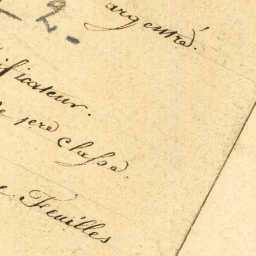 2.
argentré.
ificateur.
de 1ere classe.
Feuilles